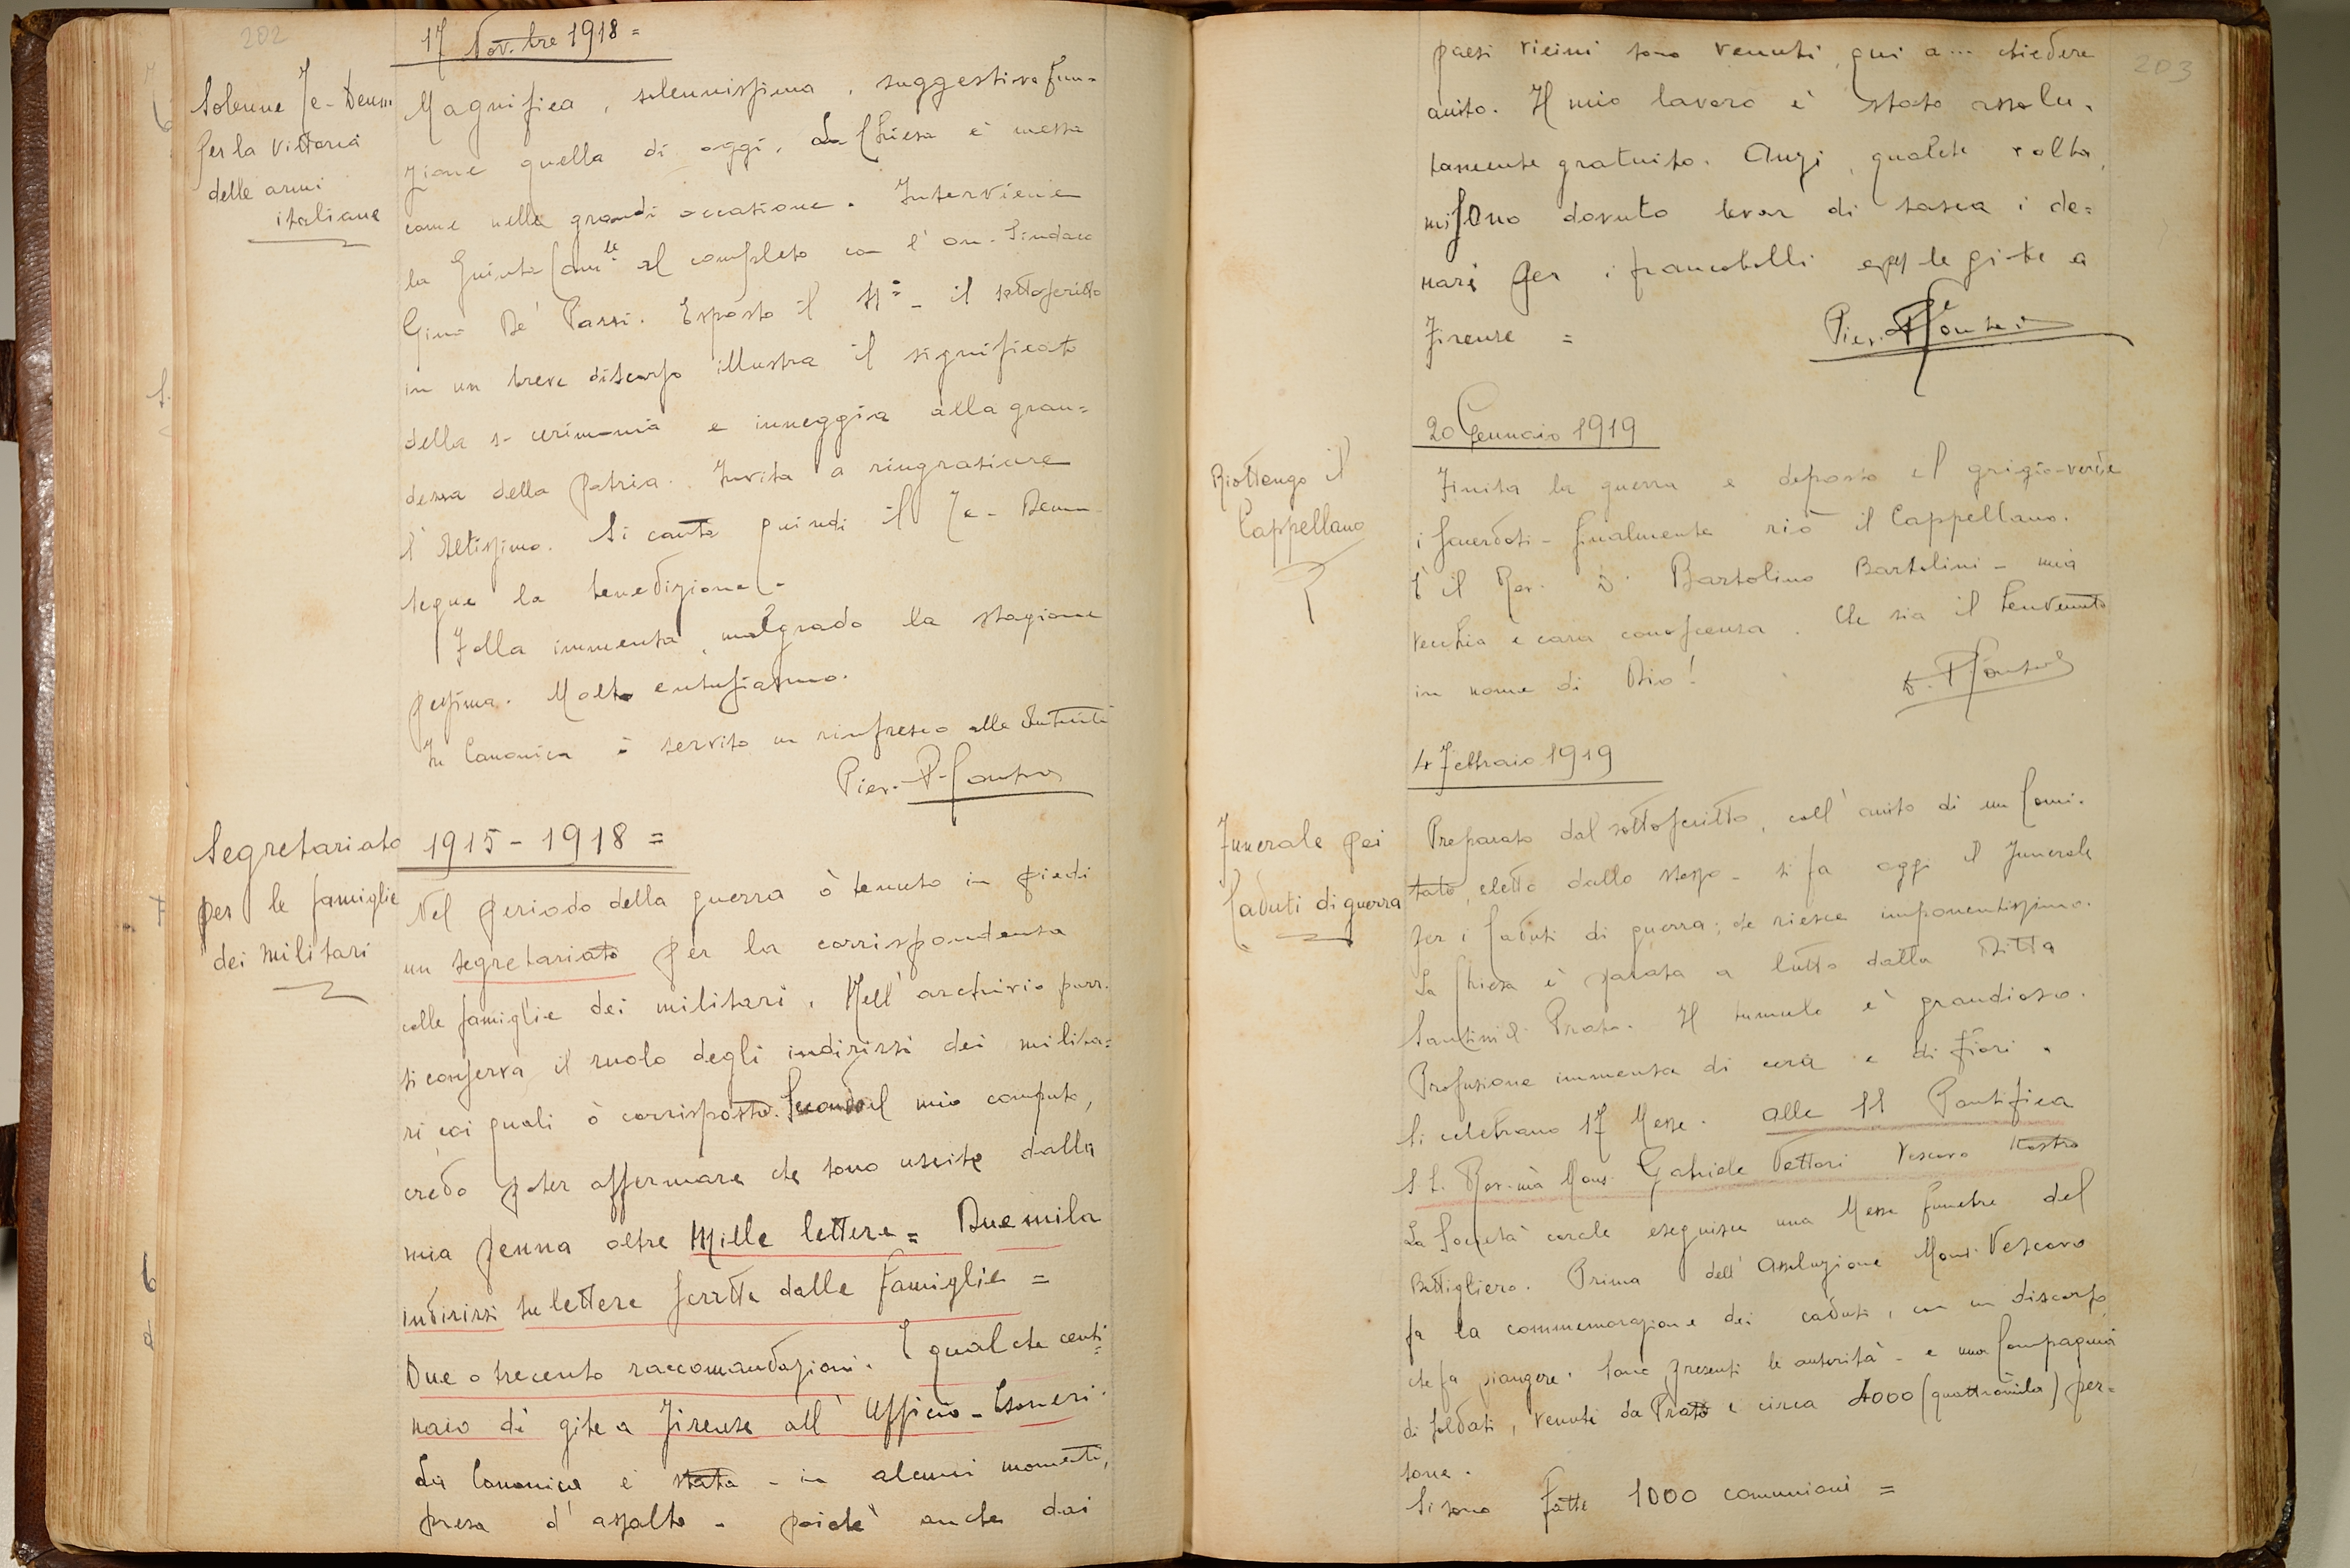 202
17 Nov.bre 1918 =
Solenne Te-Deum
per la vittoria
delle armi
italiane
Magnifica, solennissima, suggestiva fun-
zione quella di oggi. La Chiesa è messa
come nelle grandi occasione. Interviene
la Giunta Com.le al completo con l'on. Sindaco
Gino De' Pazzi. Esposto il SS= - il sottoscritto
in un breve discorso illustra il significato
della s- cerimonia e inneggia alla gran=
dezza della patria. Invita a ringraziare
l'Altissimo. Si canta quindi il Te-Deum
segue la benedizione.
Folla immensa, malgrado la stagione
pessima. Molto entusiasmo.
In Canonica è servito un rinfresco alle Autorità
Pier.
Segretariato
per le famiglie
dei militari
1915-1918 =
Nel periodo della guerra ò tenuto in piedi
un segretariato per la corrispondenza
colle famiglie dei militari. Nell'archivio parr.
si conserva il ruolo degli indirizzi dei milita=
ri coi quali ò corrisposto. Secondo il mio computo,
credo poter affermare che sono uscite dalla
mia penna oltre Mille lettere = Due mila
indirizzi su lettere scritte dalle famiglie =
Due o trecento raccomandazioni. E qualche centi=
naio di gite a Firenze all'Ufficio-Esoneri.
La Canonica è stata - in alcuni momenti,
presa d'assalto - poichè anche dai
203
paesi vicini sono venuti qui a... chiedere
aiuto. Il mio lavoro è stato assolu-
tamente gratuito. Anzi, qualche volta,
mi sono dovuto levar di tasca i de=
nari per i francobolli e per le gite a
Firenze =
Pier.
20 Gennaio 1919
Riottengo il
Cappellano
Finita la guerra e deposto il grigio-verde
i sacerdoti - finalmente riò il Cappellano.
È il Rev. D. Bartolino Bartolini - mia
vecchia e cara conoscenza. Che sia il benvenuto
in nome di Dio!
4 Febbraio 1919
Funerale pei
Caduti di guerra
Preparato dal sottoscritto, coll'aiuto di un Comi-
tato, eletto dallo stesso - si fa oggi il Funerale
per i Caduti di guerra; che riesce imponentissimo.
La Chiesa è parata a lutto dalla Ditta
Santini di Prato. Il tumulo è grandioso.
Profusione immensa di cera e di fiori.
Si celebrano 17 Messe. Alle 11 Pontifica
S.E. Rev.ma Mons. Gabriele Vettori Vescovo Nostro
La Società corale eseguisce una Messa funebre del
Bottigliero. Prima dell'Assoluzione Mons. Vescovo
fa la commemorazione dei caduti, con un discorso
che fa piangere. Sono presenti le autorità - e una Compagnia
di soldati, venuti da Prato e circa 4000 (quattromila) per=
sone.
Si sono fatte 1000 comunioni =